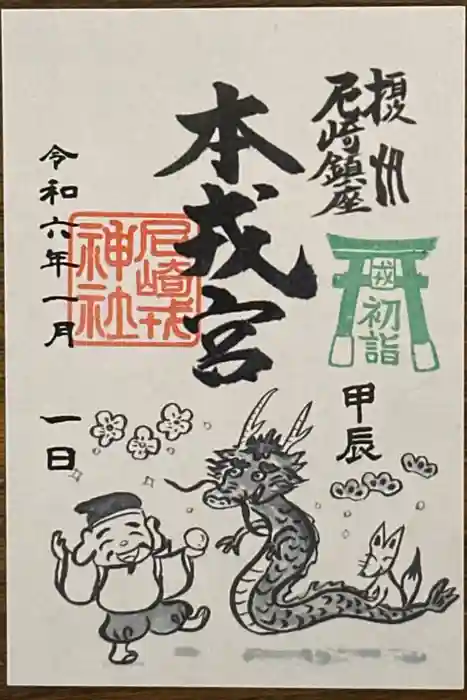 摂州
尼崎鎮座
本戎宮
尼崎戎
神社
戎
初詣
甲辰
令和六年一月
一日